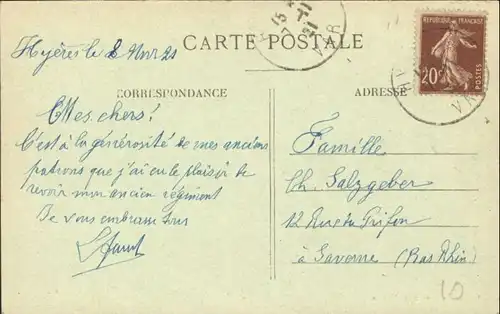 Hyères le 8 Nov 21
CARTE POSTALE
RÉPUBLIQUE FRANÇAISE
20c
POSTES
VAR
VAR
CORRESPONDANCE
ADRESSE
Mes chers!
C'est à la générosité de mes anciens
patrons que j'ai eu le plaisir de
revoir mon ancien régiment
Je vous embrasse tous
Famille
Ch. Salzgeber
12 Rue du Griffon
à Saverne (Bas Rhin)
10